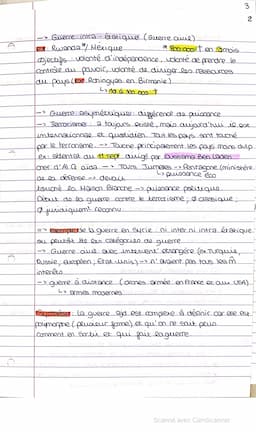 3
2
→ Guerre intra-étatique (Guerre civile)
ex: Rwanda* / Mexique * 800 000 † en 3 mois
objectifs: volonté d'indépendance, volonté de prendre le
contrôle du pouvoir, volonté de diriger les ressources
du pays (ex: Rohingyas en Birmanie)
→ Guerre asymétrique: différence de puissance
→ Terrorisme: a toujours existé, mais aujourd'hui il est
international et quotidien. Tout les pays sont touché
par le terrorisme. → Touche principalement les pays musulman
ex: attentat du 11 sept dirigé par Oussama Ben Laden
chef d'Al Qaida → Tours Jumelles → Pentagone (ministère
↳ puissance éco
de la défense → devait
touché la Maison Blanche → puissance politique.
Début de la guerre contre le terrorisme, classique,
juridiquement reconnu
la guerre en Syrie: Ni inter ni intra étatique
ou plutôt les 2 catégories de guerre
→ Guerre civile avec intervenant étrangère (ex: Turquie,
Russie, européen, Etat Unis) → n'ayant pas tous les m̂
intérêts
→ guerre à distance (drones armée en France et aux USA)
↳ armes modernes
: La guerre ajd est complexe à définir car elle est
polymorphe (plusieurs forme) et qu'on ne sait plus
comment en sortir et qui fait la guerre.
Scanné avec CamScanner